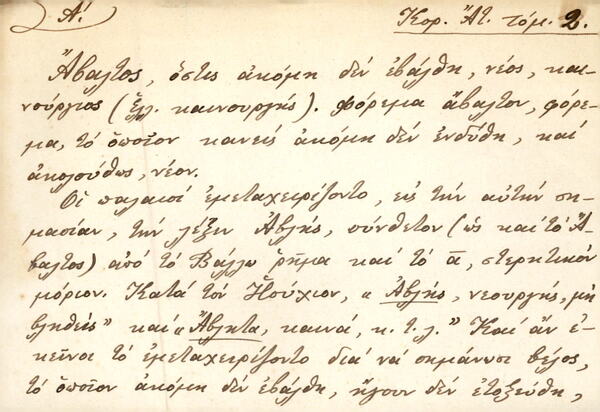 Α'. Κορ. Ἄτ. τόμ. 2.
Ἄβαλτος, ὅστις ἀκόμη δέν ἐβάλθη, νέος, και-
νούργιος (Ἑλ. καινουργής). Φόρεμα ἄβαλτον, φόρε-
μα, τό ὁποῖον κανείς ἀκόμη δέν ἐνδύθη, καί
ἀκολούθως, νέον.
Οἱ παλαιοί ἐμεταχειρίζοντο, εἰς τήν αὐτήν ση-
μασίαν, τήν λέξιν Ἀβλής, σύνθετον (ὡς καί τό Ἄ-
βαλτος) ἀπό τό Βάλλω ῥῆμα καί τό α, στερητικόν
μόριον. Κατά τόν Ἡσύχιον, "Ἀβλής, νεουργής, μή
βληθείς" καί "Ἄβλητα, καινά, κ.τ.λ." Καί ἄν ἐ-
κεῖνοι τό ἐμεταχειρίζοντο διά νά σημάνωσι βέλος,
τό ὁποῖον ἀκόμη δέν ἐβάλθη, ἤγουν δέν ἐτοξεύθη,